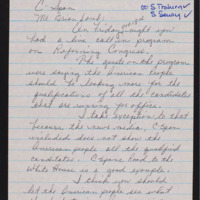 cc: S Trahern ✓
S Swain ✓
C. Span
Mr. Brian Lamb,
On Friday night you
had a live call in program
on Reforming Congress.
The guests on the program
were saying the American People
should be looking more for the
qualifications of all the candidates
that are running for office.
I take exception to that
because the news media, C Span
included does not show the
American people all the qualified
candidates. C Spans Road to the
White House is a good example.
I think you should
let the American people see what